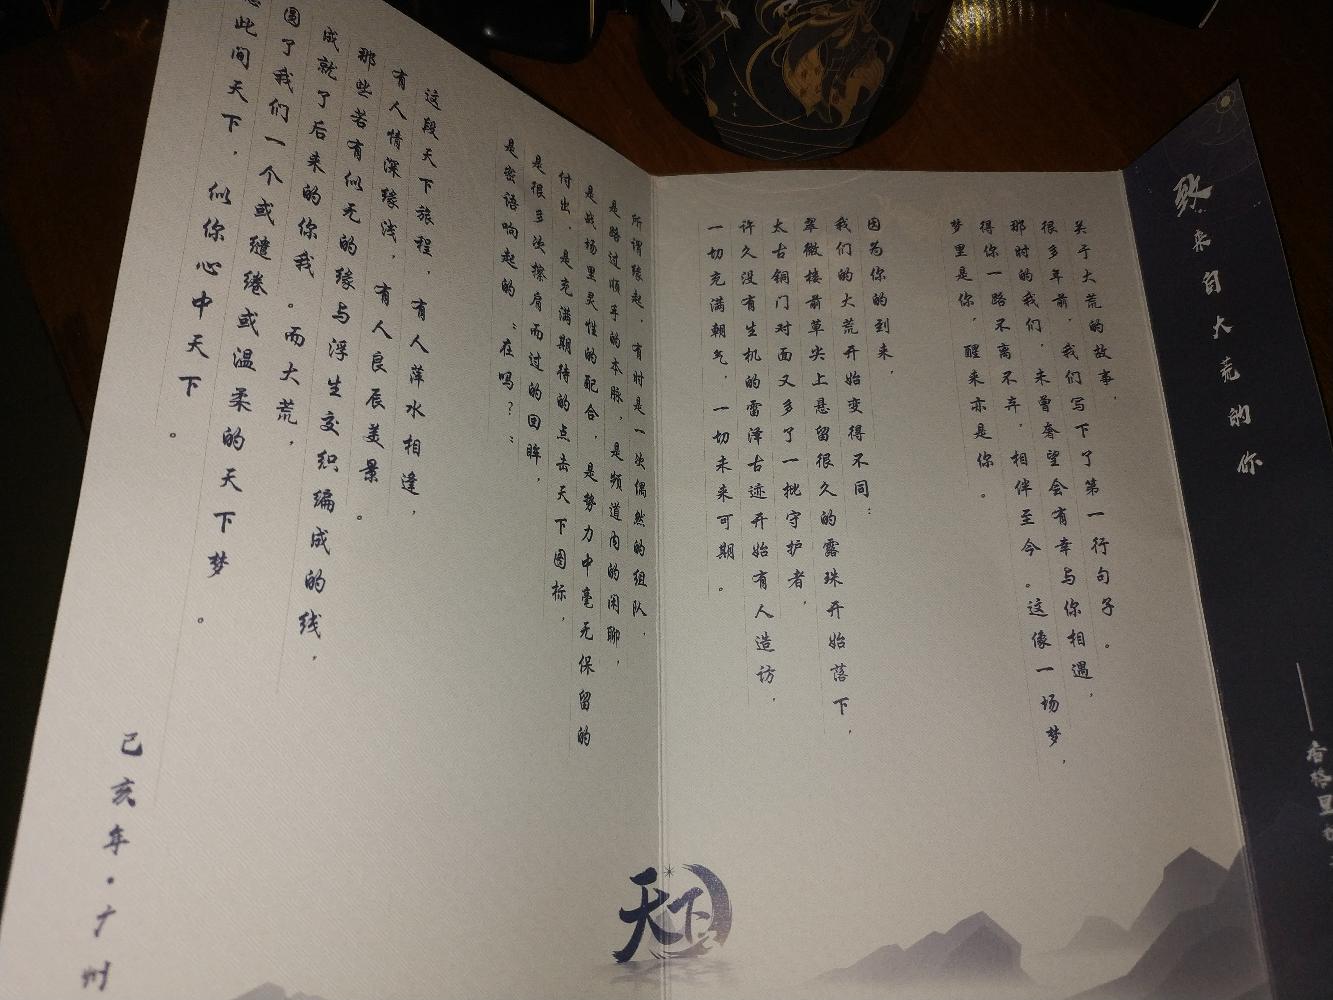 致来自大荒的你
香格里
关于大荒的故事，
很多年前，我们写下了第一行句子。
那时的我们，未曾奢望会有幸与你相遇，
得你一路不离不弃，相伴至今。这像一场梦，
梦里是你，醒来亦是你。
因为你的到来，
我们的大荒开始变得不同：
翠微楼前草尖上悬留很久的露珠开始落下，
太古铜门对面又多了一批守护者，
许久没有生机的雷泽古迹开始有人造访，
一切充满朝气，一切未来可期。
所谓缘起，有时是一次偶然的组队，
是路过顺手的本脉，是频道内的闲聊，
是战场里灵性的配合，是势力中毫无保留的
付出，是充满期待的点击天下图标，
是很多次擦肩而过的回眸，
是密语响起的：在吗？：
这段天下旅程，有人萍水相逢，
有人情深缘浅，有人良辰美景。
那些若有似无的缘与浮生交织编成的线，
成就了后来的你我。而大荒，
圆了我们一个或缱绻或温柔的天下梦。
此间天下，似你心中天下。
己亥年·广州
天下